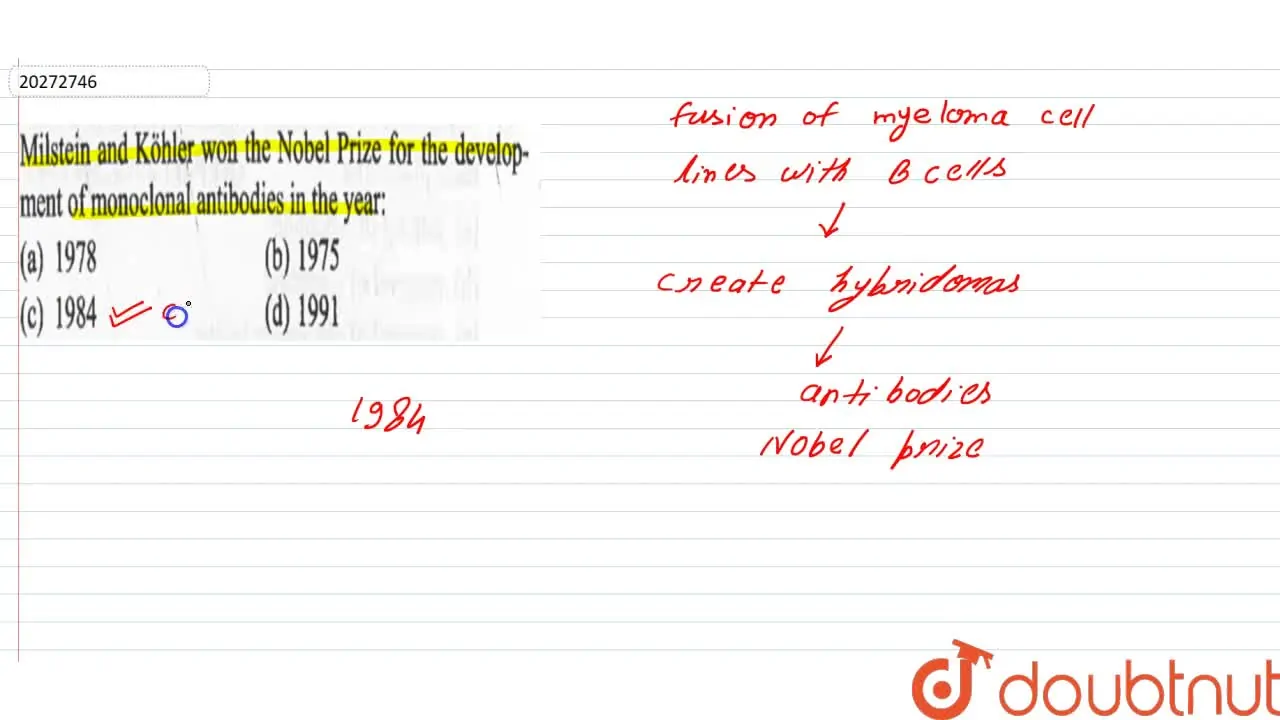 20272746
Milstein and Köhler won the Nobel Prize for the develop-
ment of monoclonal antibodies in the year:
(a) 1978 (b) 1975
(c) 1984 (d) 1991
1984
fusion of myeloma cell
lines with B cells
create hybridomas
antibodies
Nobel prize
doubtnut